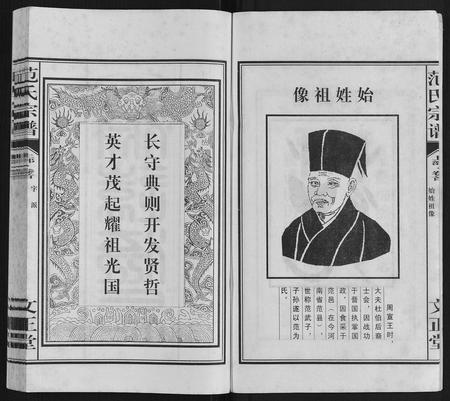 范氏宗谱
始姓祖像
文正堂
始姓祖像
周宣王时，
大夫杜伯后裔
士会，因战功
于晋国执掌国
政，因食采于
范邑（在今河
南省范县），
世称范武子，
子孙遂以范为
氏。
长守典则开发贤哲
英才茂起耀祖光国
范氏宗谱
字派
文正堂